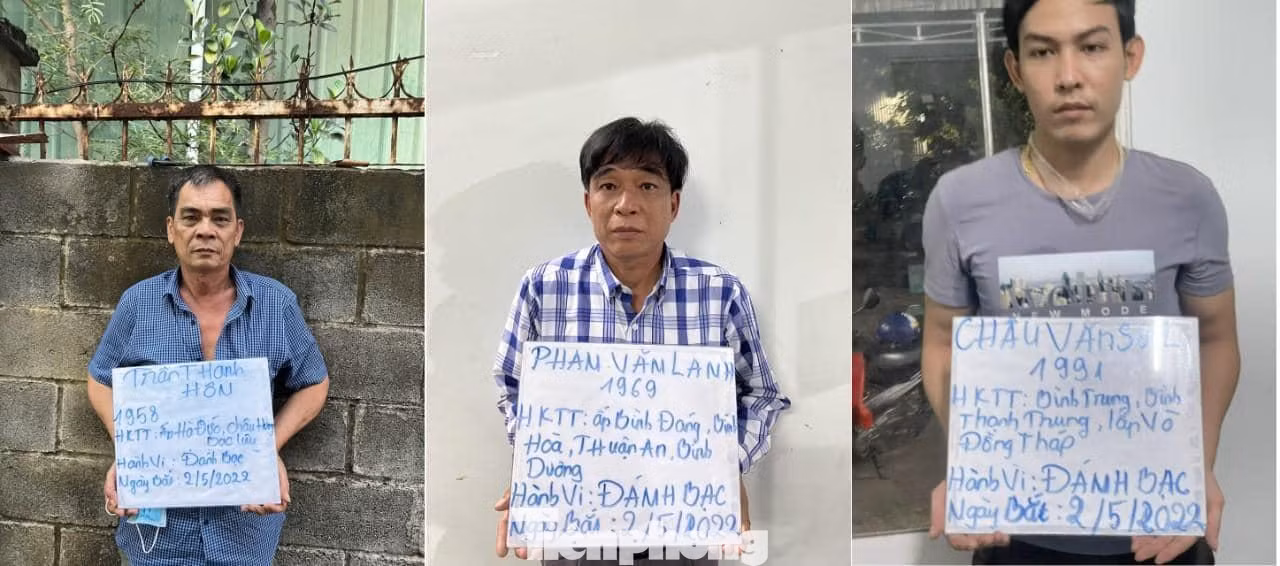 Trần Thanh
HÔN
1958
HKTT: Ấp Hà Đức, Châu
Bạc Liêu
Hành Vi: Đánh Bạc
Ngày Bắt: 2/5/2022
PHAN VĂN LANH
1969
HKTT: ấp Bình Đáng, Bình
Hoà, THuận An, Bình
Dương
Hành Vi: ĐÁNH BẠC
Ngày Bắt: 2/5/2022
Tienphong
NEW MODE
CHÂU VĂN
1991
HKTT: Bình Trung, Bình
Thạnh Trung, Lấp Vò
Đồng Tháp
Hành Vi: ĐÁNH BẠC
Ngày Bắt: 2/5/2022